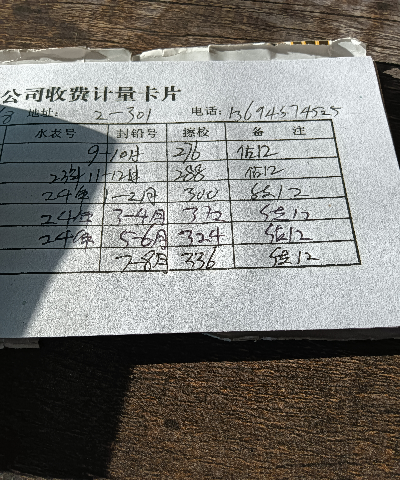 公司收费计量卡片
地址: 2-301 电话: 13694574525
水表号 封铅号 擦校 备 注
9-10月 276 估12
23年 11-12月 288 估12
24年 1-2月 300 估12
24年 3-4月 312 估12
24年 5-6月 324 估12
7-8月 336 估12